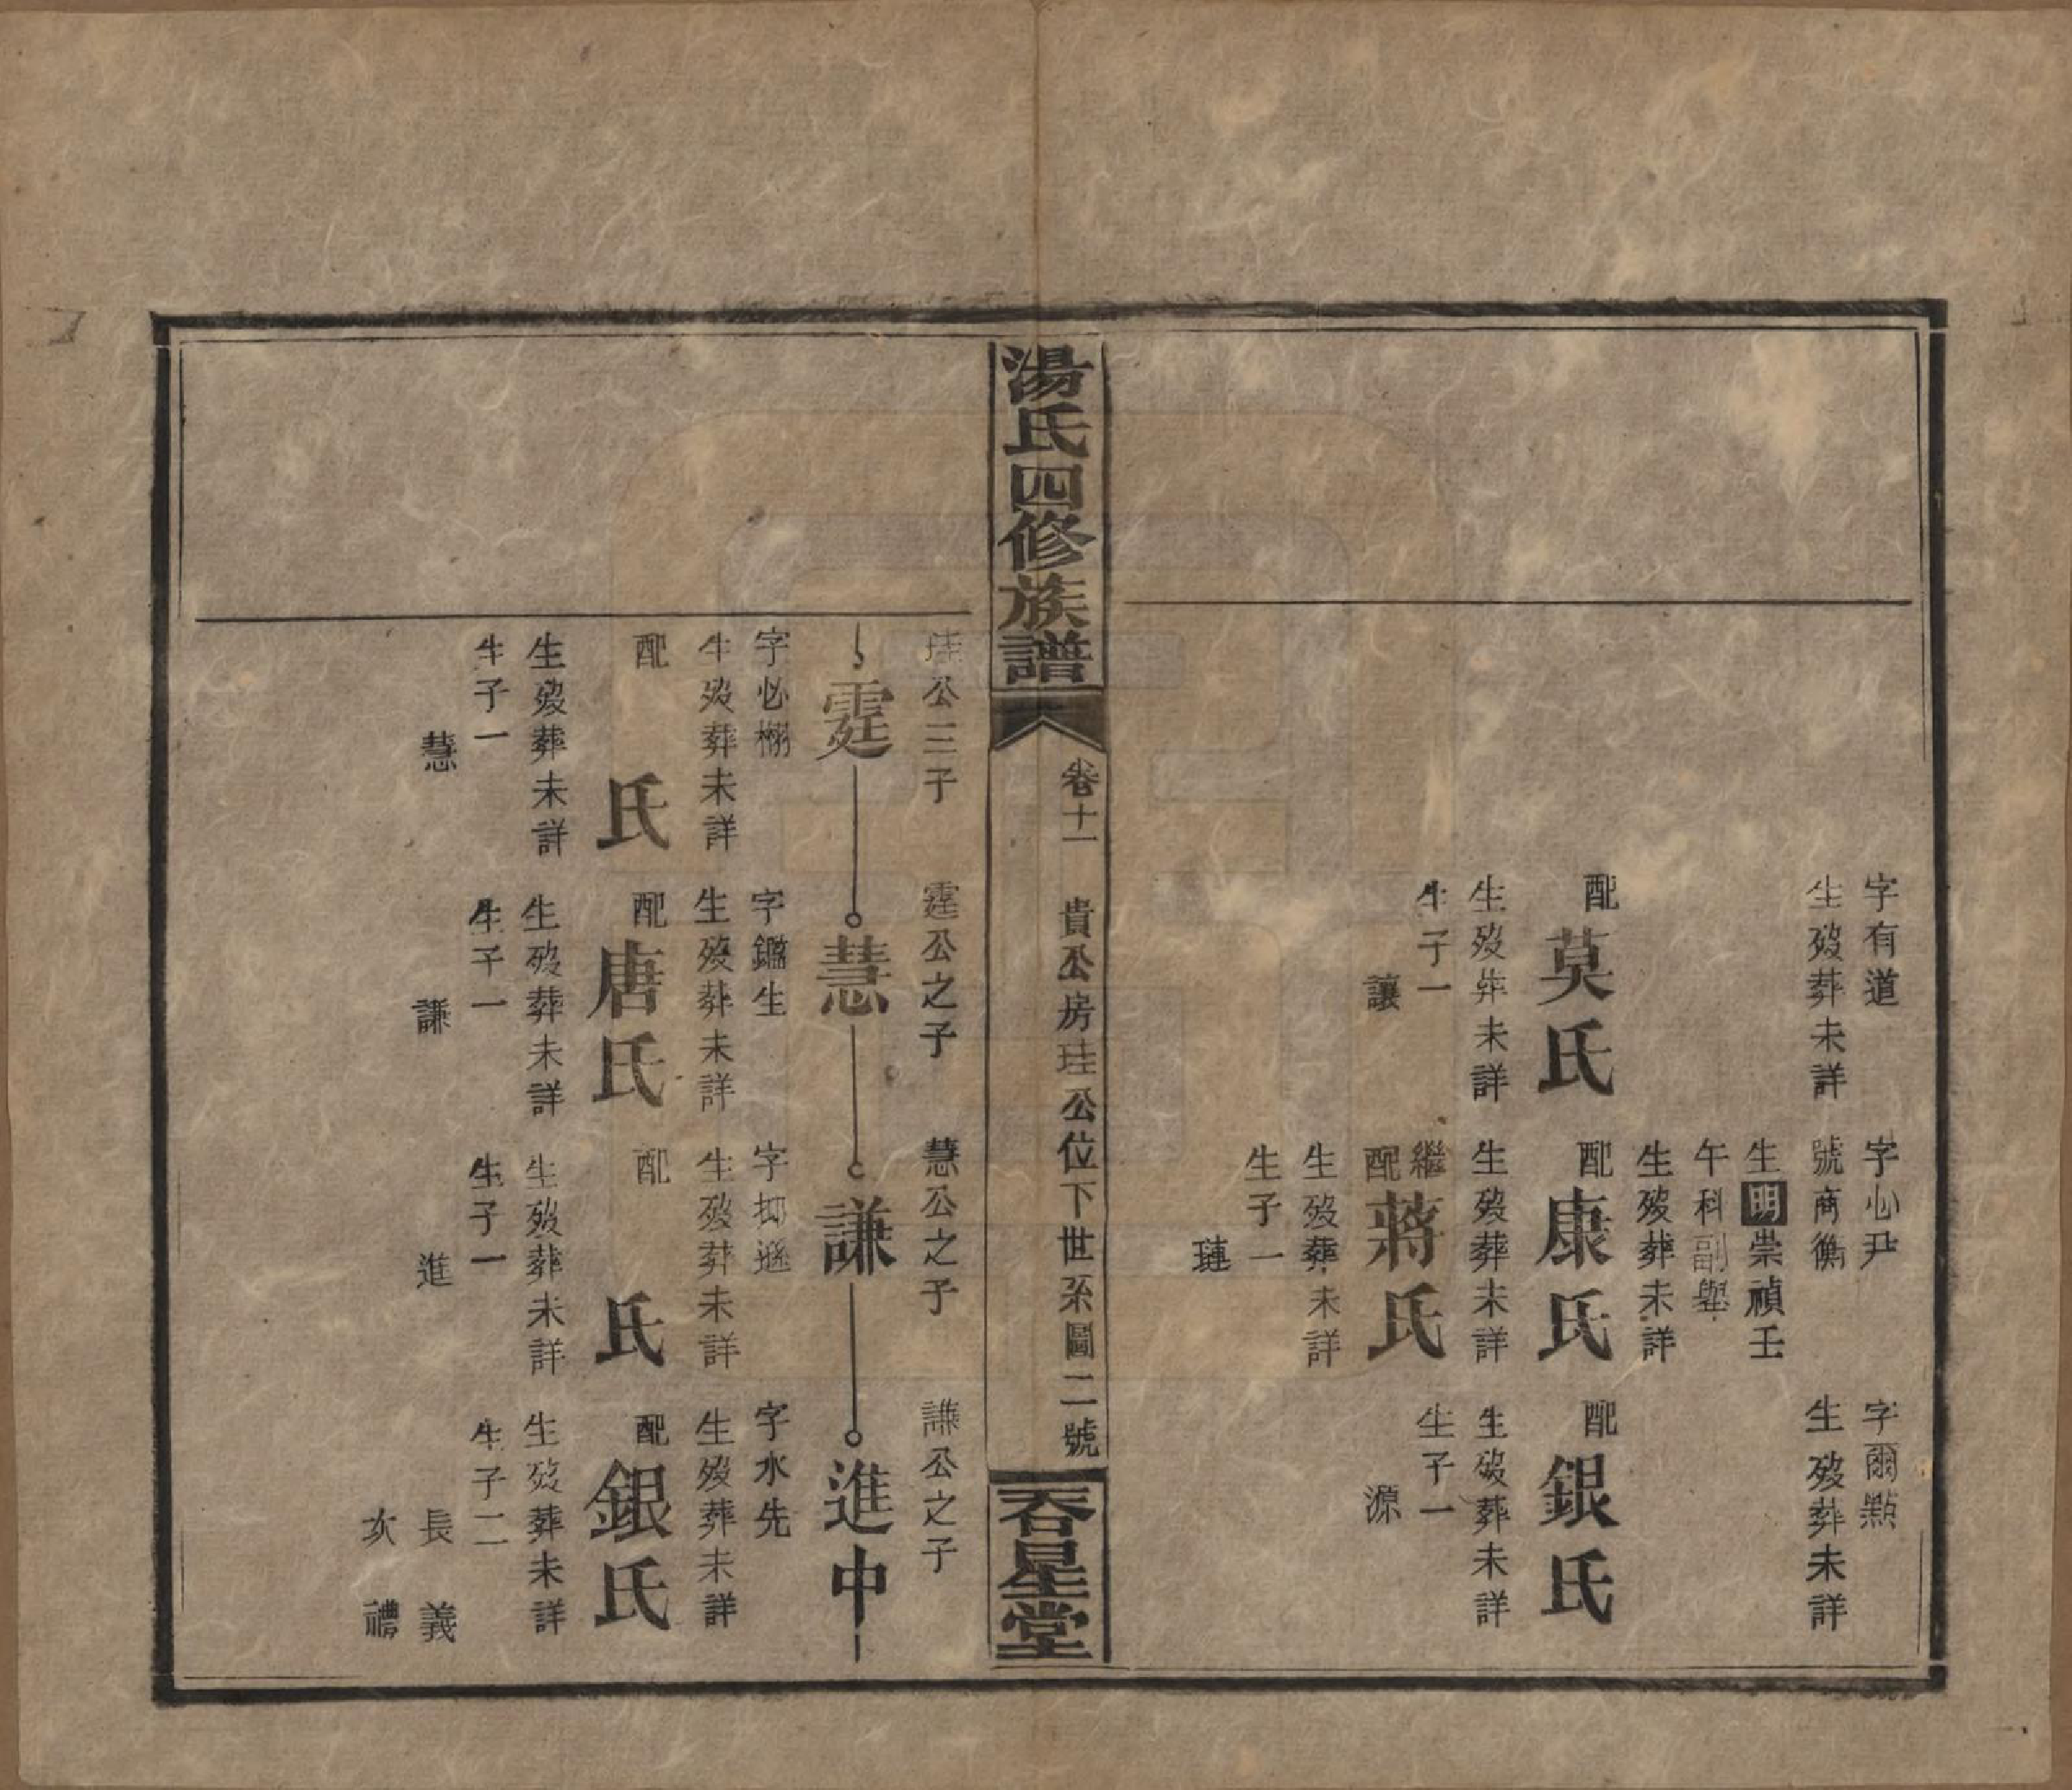 字有道
生歿葬未詳
配
莫氏
生歿葬未詳
生子一
讓
字心尹
號商
生明崇禎壬
午科副舉
生歿葬未詳
配
康氏
生歿葬未詳
繼
配
蔣氏
生歿葬未詳
生子一
璉
字爾點
生歿葬未詳
配
銀氏
生歿葬未詳
生子一
源
湯氏四修族譜
卷十一
貴公房珪公位下世系圖
二號
吞星堂
珪公三子
霆
字必栩
生歿葬未詳
配
氏
生歿葬未詳
生子一
慧
霆公之子
慧
字鑑生
生歿葬未詳
配
唐氏
生歿葬未詳
生子一
謙
慧公之子
謙
字抑遜
生歿葬未詳
配
氏
生歿葬未詳
生子一
進
謙公之子
進中
字水先
生歿葬未詳
配
銀氏
生歿葬未詳
生子二
長義
次禮